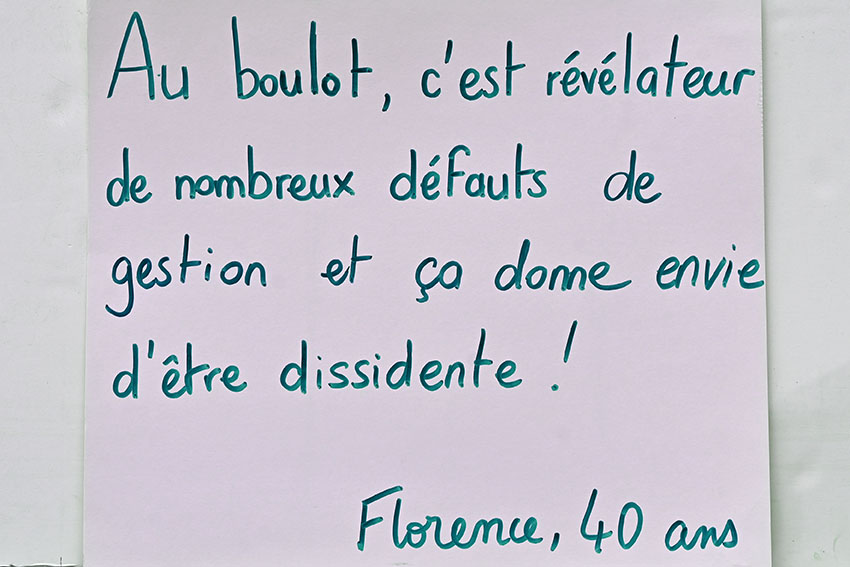 Au boulot, c'est révélateur
de nombreux défauts de
gestion et ça donne envie
d'être dissidente !
Florence, 40 ans